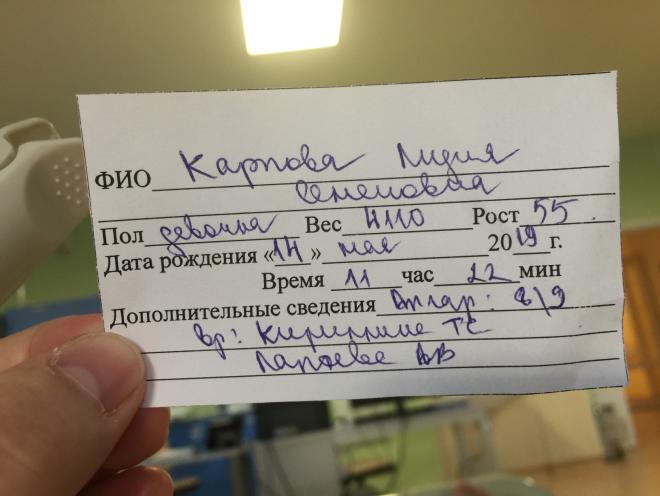 ФИО Карпова Лидия
Семеновна
Пол девочка Вес 4110 Рост 55
Дата рождения «14» мая 2019 г.
Время 11 час 22 мин
Дополнительные сведения Апгар: 8/9
вр: